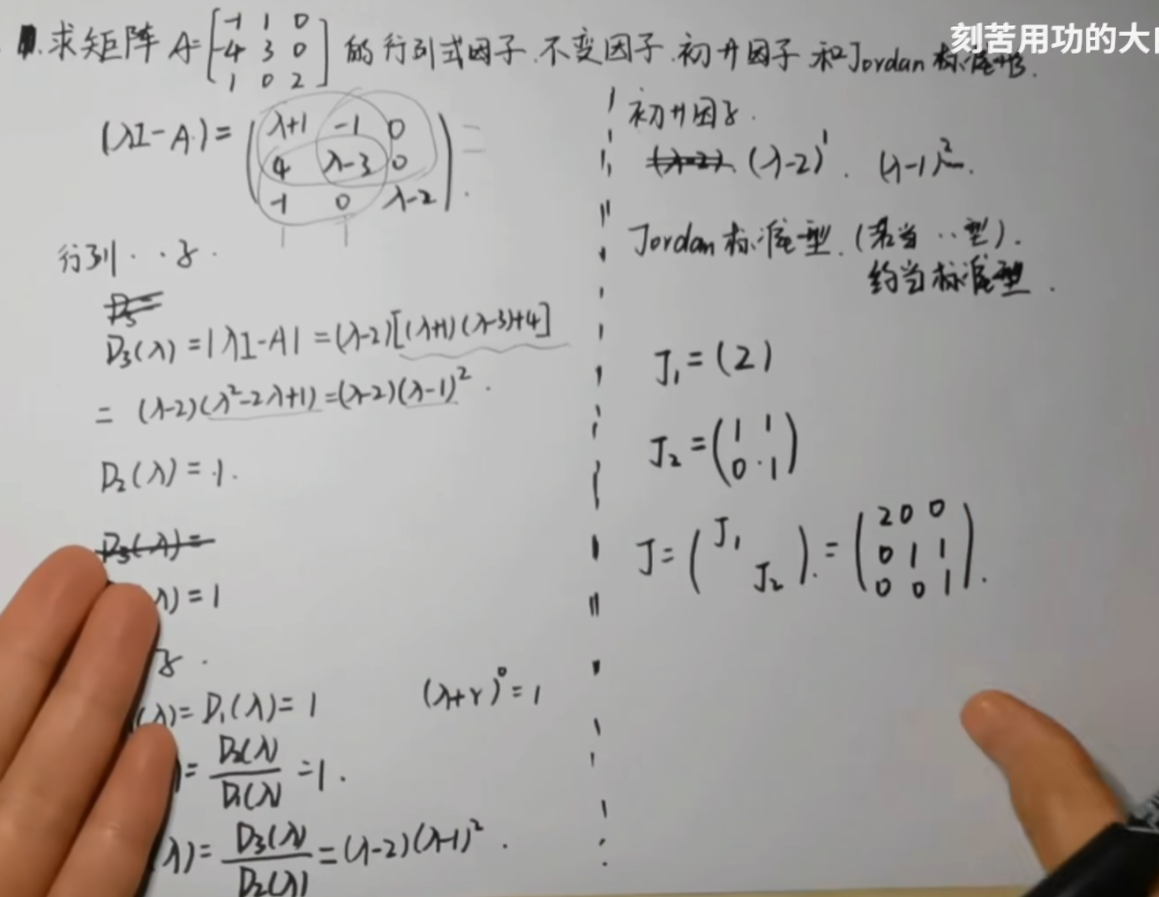 刻苦用功的大
1.求矩阵 A=[-1 1 0
-4 3 0
1 0 2] 的行列式因子.不变因子.初升因子 和Jordan标准型.
(λI-A)=(λ+1 -1 0
4 λ-3 0
-1 0 λ-2)=
行列..子.
D₃(λ)=|λI-A|=(λ-2)[(λ+1)(λ-3)+4]
=(λ-2)(λ²-2λ+1)=(λ-2)(λ-1)².
D₂(λ)=1.
D₃(λ)=
λ)=1
子.
(λ)=D₁(λ)=1 (λ+r)⁰=1
)=D₂(λ)/D₁(λ)=1.
λ)=D₃(λ)/D₂(λ)=(λ-2)(λ-1)².
初升因子.
(λ-2) (λ-2)¹. (λ-1)².
Jordan标准型.(若当..型).
约当标准型.
J₁=(2)
J₂=(1 1
0 1)
J=(J₁
J₂).=(2 0 0
0 1 1
0 0 1).